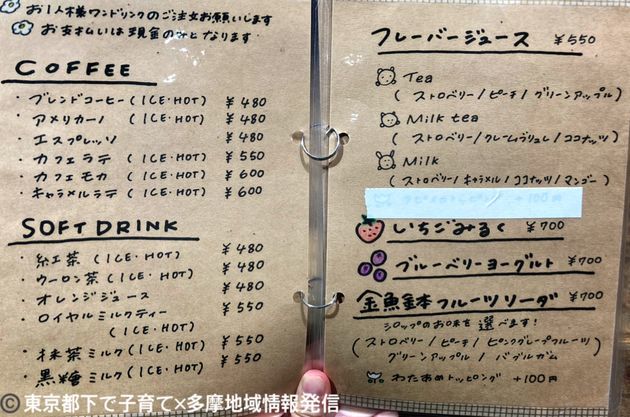 お1人様ワンドリンクのご注文お願いします
お支払いは現金のみとなります
COFFEE
・ブレンドコーヒー(ICE・HOT) ¥480
・アメリカーノ(ICE・HOT) ¥480
・エスプレッソ ¥480
・カフェラテ(ICE・HOT) ¥550
・カフェモカ(ICE・HOT) ¥600
・キャラメルラテ(ICE・HOT) ¥600
SOFT DRINK
・紅茶(ICE・HOT) ¥480
・ウーロン茶(ICE・HOT) ¥480
・オレンジジュース ¥480
・ロイヤルミルクティー ¥550
(ICE・HOT)
・抹茶ミルク(ICE・HOT) ¥550
・黒糖ミルク(ICE・HOT) ¥550
フレーバージュース ¥550
Tea
(ストロベリー/ピーチ/グリーンアップル)
Milk tea
(ストロベリー/クレームブリュレ/ココナッツ)
Milk
(ストロベリー/キャラメル/ココナッツ/マンゴー)
+100円
いちごみるく ¥700
ブルーベリーヨーグルト ¥700
金魚鉢フルーツソーダ ¥700
シロップのお味を選べます!
(ストロベリー/ピーチ/ピンクグレープフルーツ/
グリーンアップル/バブルガム)
わたあめトッピング +100円
© 東京都下で子育て×多摩地域情報発信